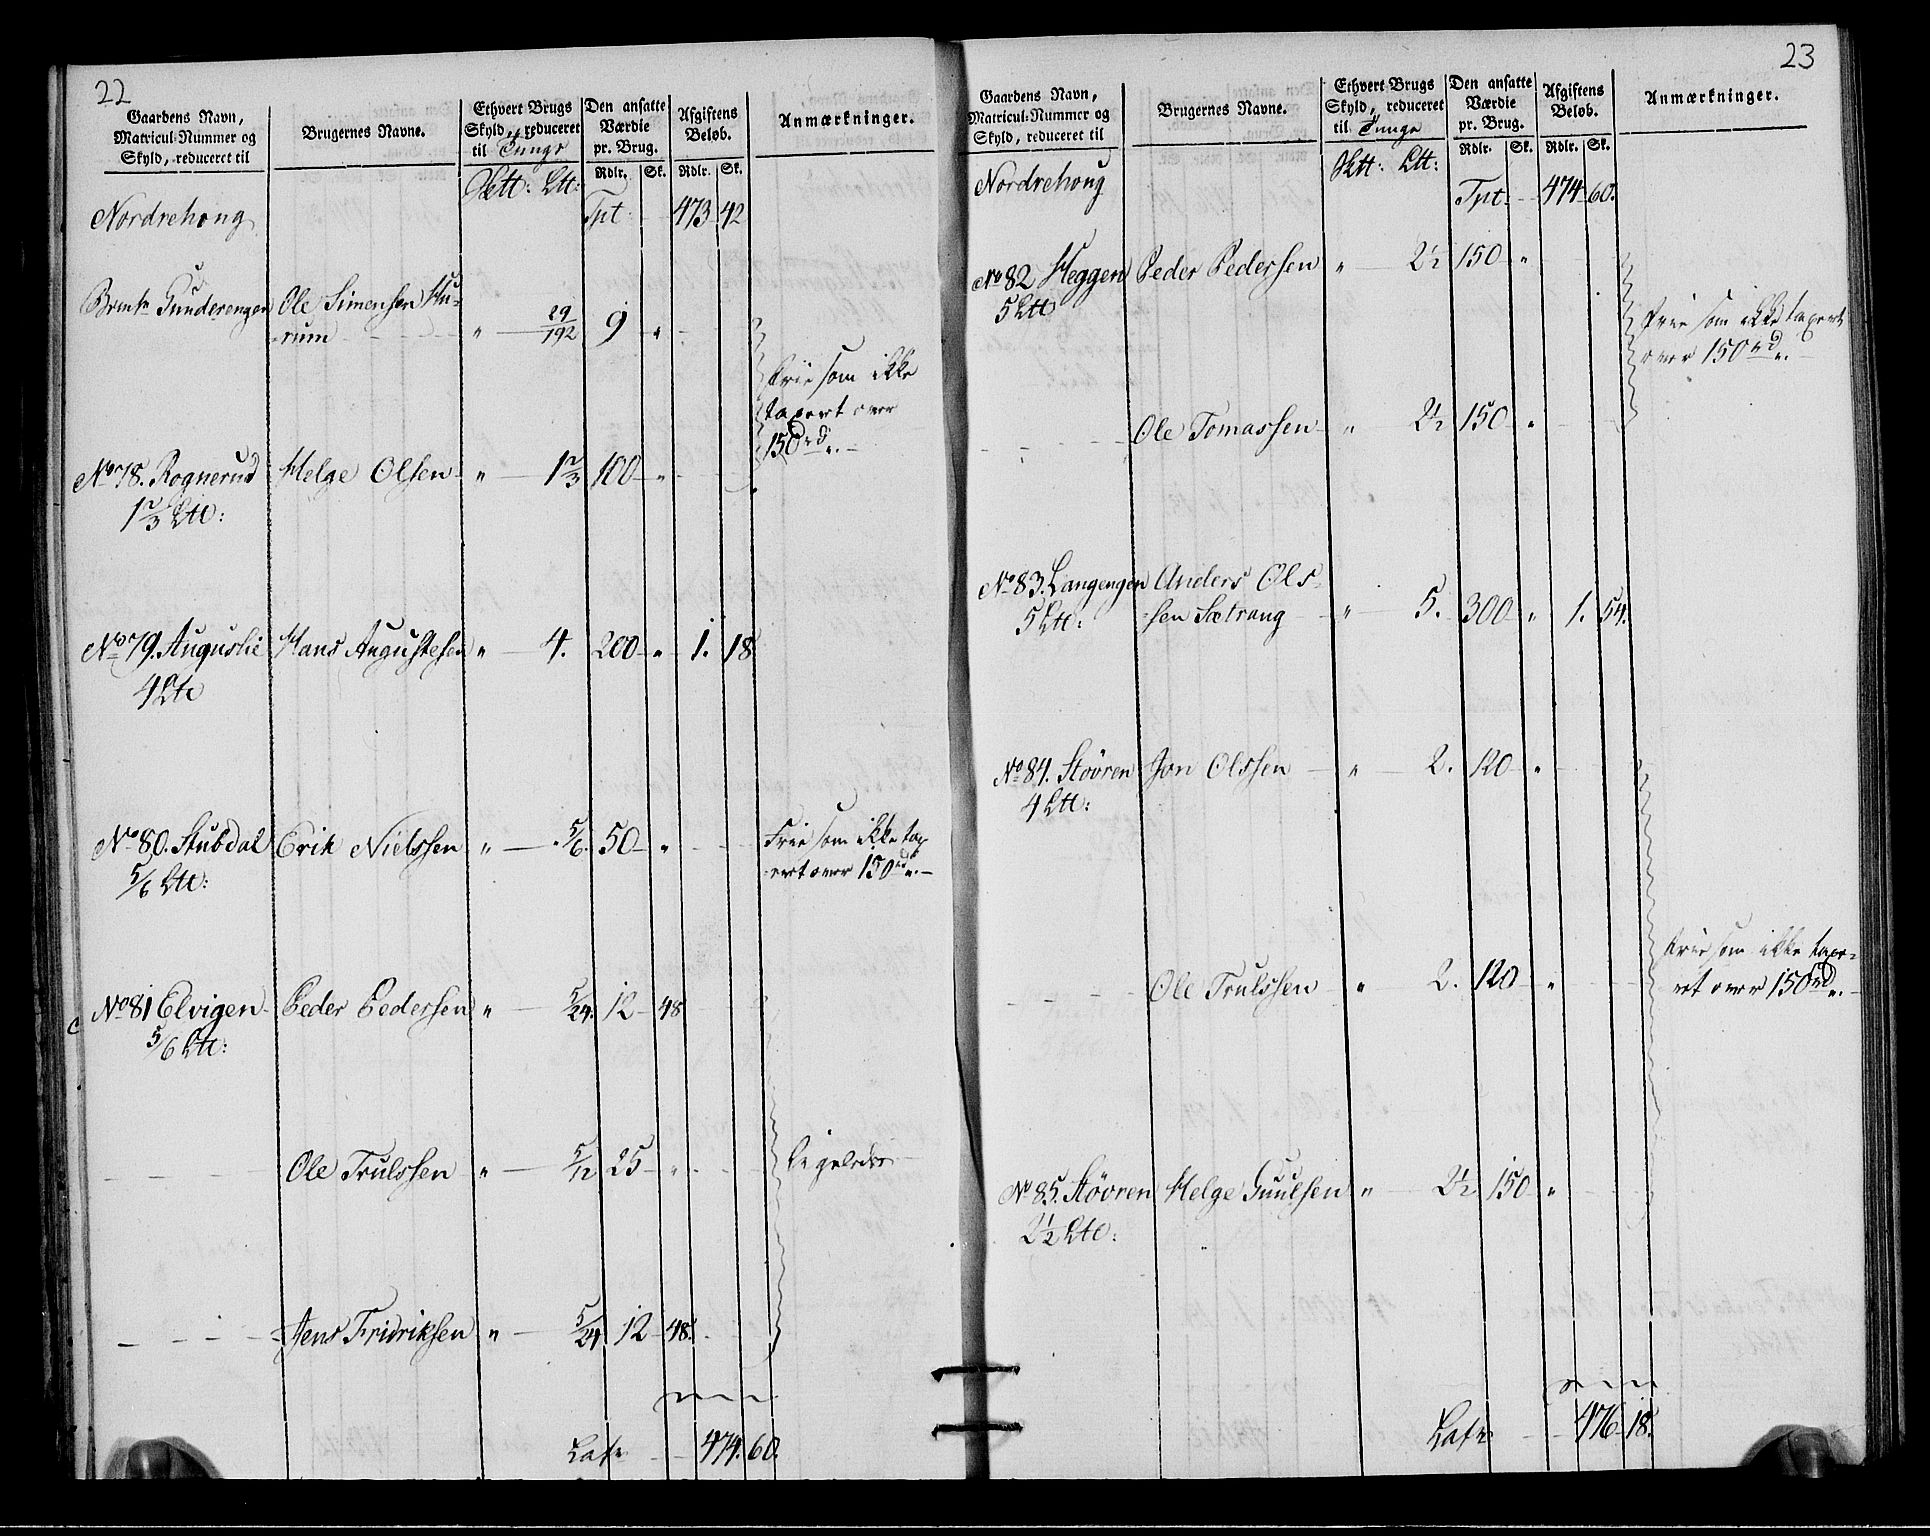 22
Gaardens Navn, Matricul-Nummer og Skyld, reduceret til
Brugernes Navne.
Ethvert Brugs Skyld, reduceret til Tunge
Den ansatte Værdie pr. Brug.
Afgiftens Beløb.
Anmærkninger.
Rdlr. Sk. Rdlr. Sk.
Nordrehoug Tpt: 473 42
Gunderengen Ole Simensen Hu-
rum " 29/192 9 "
Frie som ikke
taxert over
150 rd.
No 78. Rognerud Helge Olsen " 1 2/3 100 "
1 2/3 Ltt:
No 79. Auguslie Hans Augustesen " 4. 200 " 1. 18
4 Ltt
No 80. Stubdal Erik Nielssen " 5/6. 50 " Frie som ikke tax
5/6 Ltt: ert over 150 rd.
No 81 Elvigen Peder Pedersen " 5/24. 12 48
5/6 Ltt:
Ole Trulssen " 5/12 25 " ligeledes
Jens Fridriksen " 5/24 12 48.
Lats 474. 60.
23
Gaardens Navn, Matricul-Nummer og Skyld, reduceret til
Brugernes Navne.
Ethvert Brugs Skyld, reduceret til Tunge
Den ansatte Værdie pr. Brug.
Afgiftens Beløb.
Anmærkninger.
Rdlr. Sk. Rdlr. Sk.
Nordrehoug Tpt: 474 60.
No 82 Heggen Peder Pedersen " 2 1/2 150 "
5 Ltt
Frie som ikke taxert
over 150 rd.
Ole Tomassen " 2 1/2 150 "
No 83. Langengen Anders Ols-
5 Ltt: sen Sætrang " 5. 300 " 1. 54.
No 84. Støvren Jon Olssen " 2. 120 "
4 Ltt:
Frie som ikke taxe-
Ole Trulssen " 2. 120 " rt over 150 rd.
No 85. Støvren Helge Guulsen " 2 1/2 150 "
2 1/2 Ltt:
Lats 476 18.